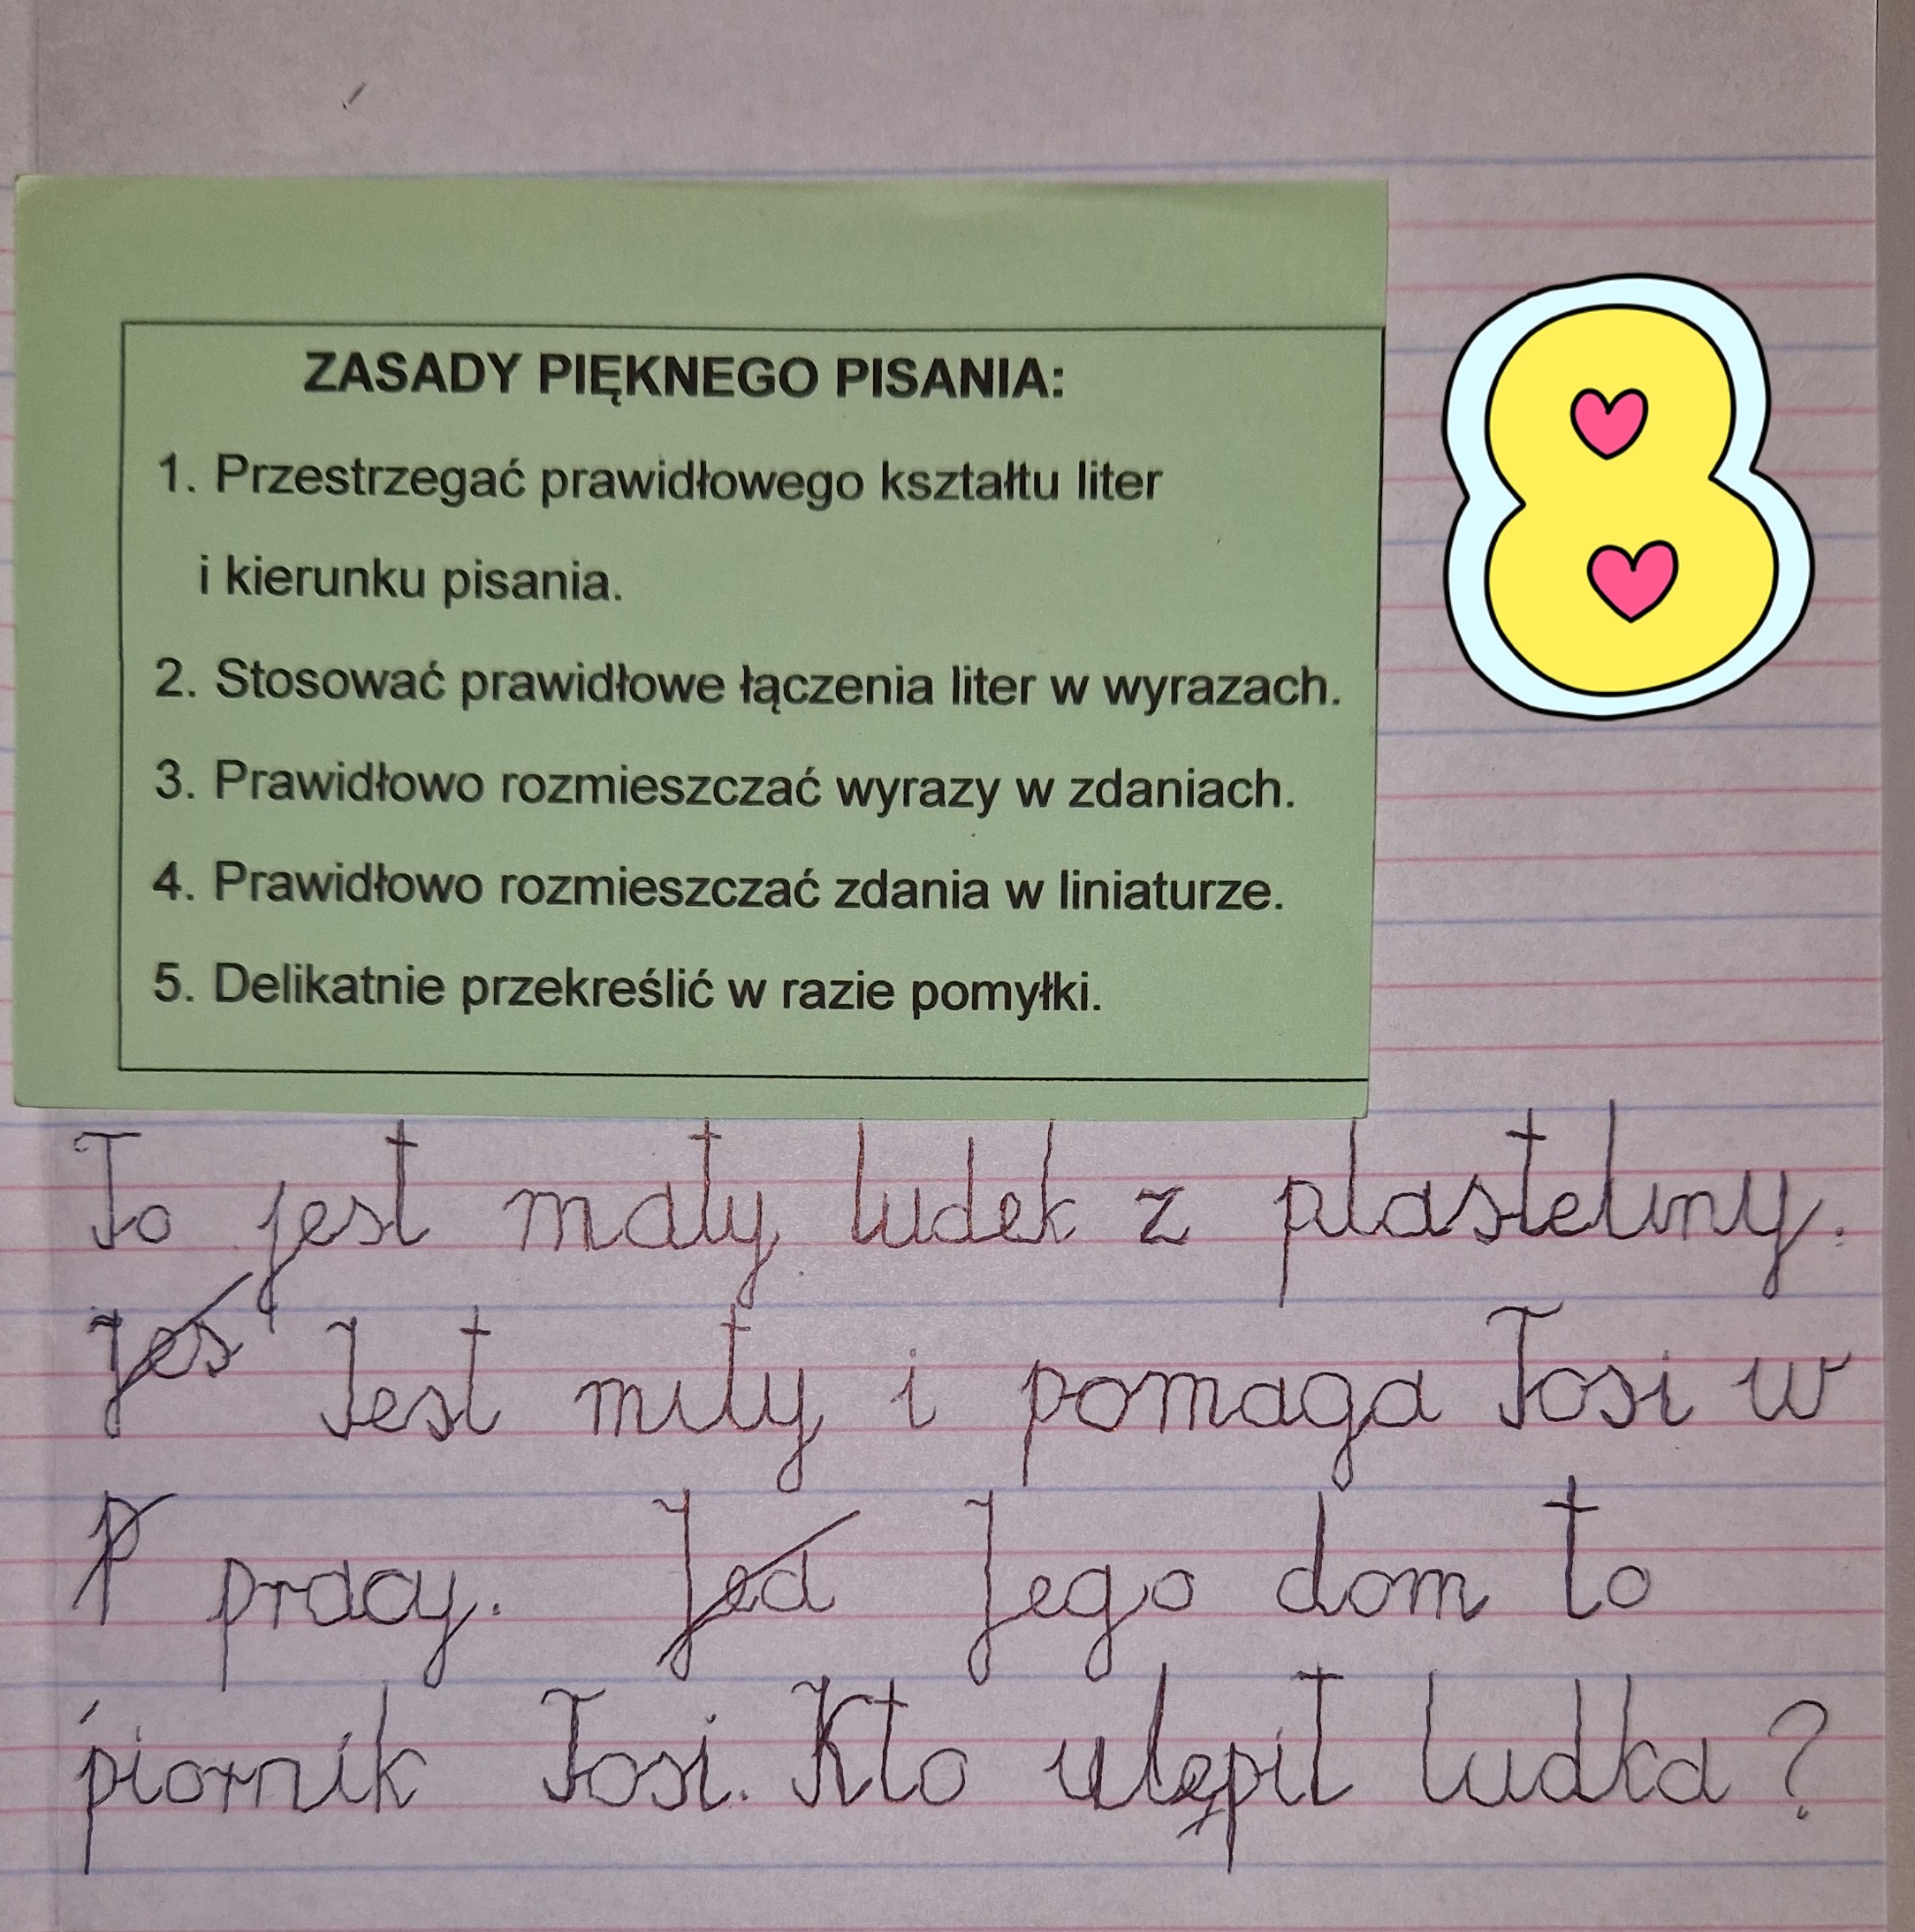 ZASADY PIĘKNEGO PISANIA:
1. Przestrzegać prawidłowego kształtu liter
i kierunku pisania.
2. Stosować prawidłowe łączenia liter w wyrazach.
3. Prawidłowo rozmieszczać wyrazy w zdaniach.
4. Prawidłowo rozmieszczać zdania w liniaturze.
5. Delikatnie przekreślić w razie pomyłki.
8
To jest mały ludek z plasteliny.
Jes Jest miły i pomaga Tosi w
P pracy. Jed Jego dom to
piórnik Tosi. Kto ulepił ludka?